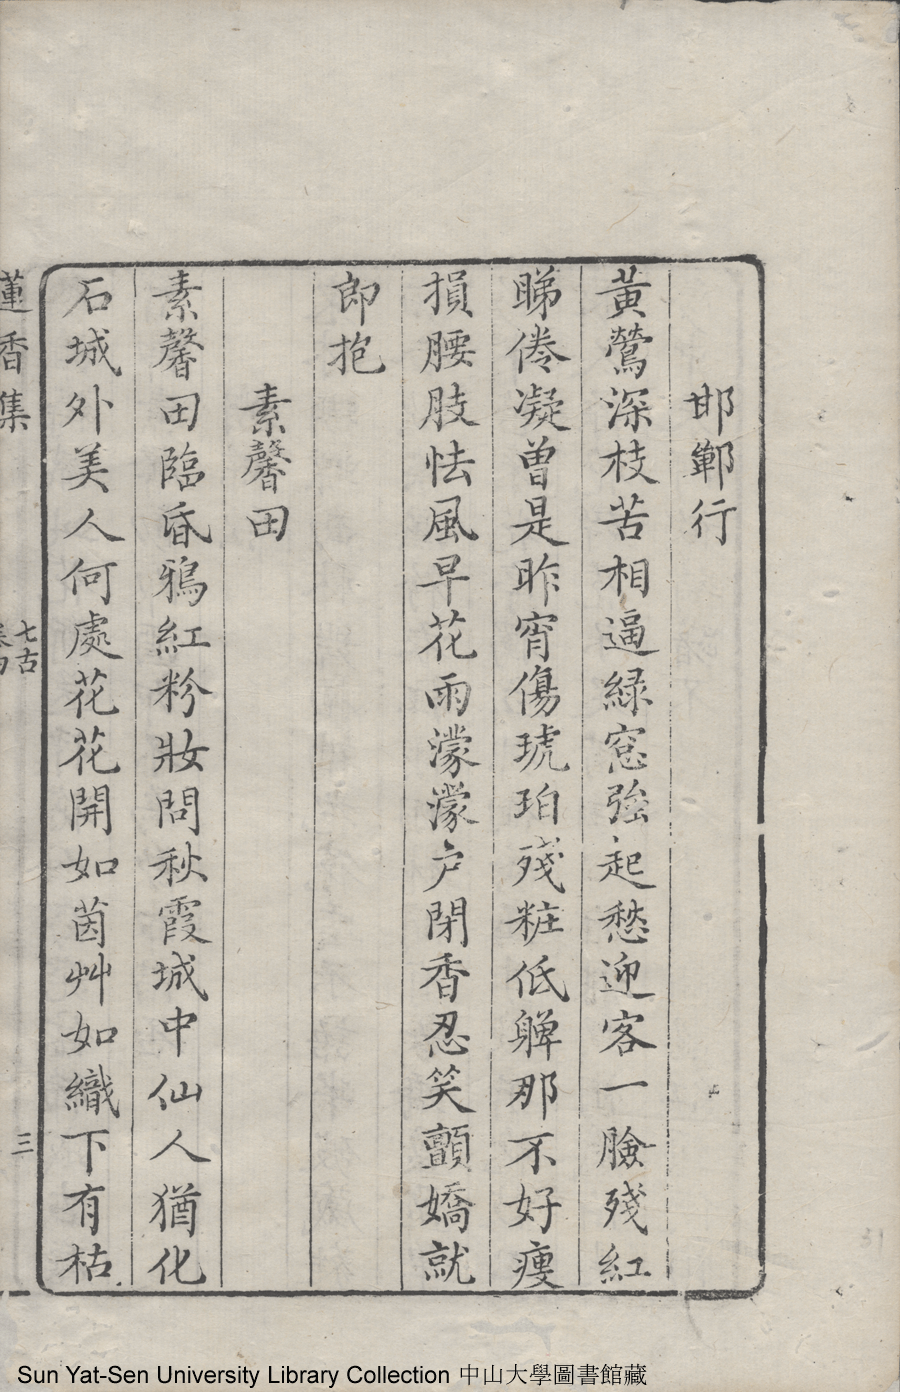 邯鄲行
黃鶯深枝苦相逼綠窓強起愁迎客一臉殘紅
睇倦凝曾是昨宵傷琥珀殘粧低軃那不好瘦
損腰肢怯風早花雨濛濛户閉香忍笑顫嬌就
郎抱
素馨田
素馨田臨昏鴉紅粉妝問秋霞城中仙人猶化
石城外美人何處花花開如茵艸如織下有枯
蓮香集
七古
三
Sun Yat-Sen University Library Collection 中山大學圖書館藏